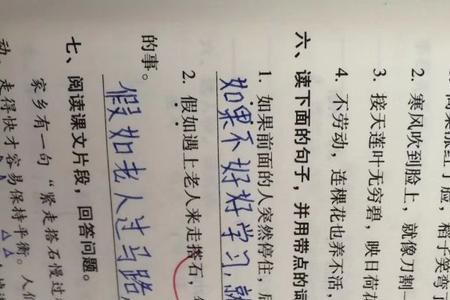 2. 寒风吹到脸上，就像刀割
3. 接天莲叶无穷碧，映日荷
4. 不劳动，连棵花也养不活，
六、读下面的句子，并用带点的词
1. 如果前面的人突然停住，后
如果不好好学习，就
2. 假如遇上老人来走搭石，
的事。
假如老人过马路
七、阅读课文片段，回答问题。
家乡有一句“紧走搭石慢过
动，走得快才容易保持平衡。人们